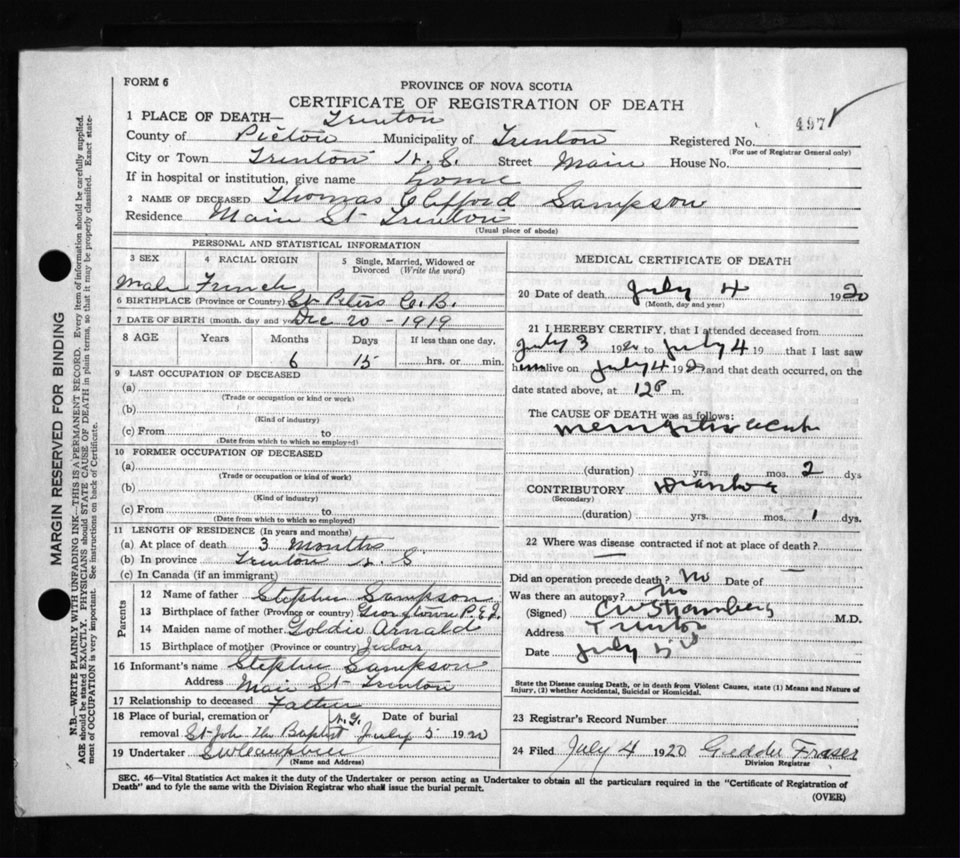 FORM 6
PROVINCE OF NOVA SCOTIA
CERTIFICATE OF REGISTRATION OF DEATH
497
1 PLACE OF DEATH— Trenton
County of Pictou Municipality of Trenton Registered No.
(For use of Registrar General only)
City or Town Trenton N.S. Street Main House No.
If in hospital or institution, give name home
2 NAME OF DECEASED Thomas Clifford Sampson
Residence Main St Trenton
(Usual place of abode)
PERSONAL AND STATISTICAL INFORMATION
3 SEX 4 RACIAL ORIGIN 5 Single, Married, Widowed or Divorced (Write the word)
Male French
6 BIRTHPLACE (Province or Country) St Peters C.B.
7 DATE OF BIRTH (month, day and year) Dec 20 - 1919
8 AGE Years Months Days If less than one day,
6 15 hrs. or min.
9 LAST OCCUPATION OF DECEASED
(a)
(Trade or occupation or kind or work)
(b)
(Kind of industry)
(c) From to
(Date from which to which so employed)
10 FORMER OCCUPATION OF DECEASED
(a)
(Trade or occupation or kind of work)
(b)
(Kind of industry)
(c) From to
(Date from which to which so employed)
11 LENGTH OF RESIDENCE (In years and months)
(a) At place of death 3 months
(b) In province Trenton N.S
(c) In Canada (if an immigrant)
Parents
12 Name of father Stephen Sampson
13 Birthplace of father (Province or country) Georgtown P.E.I.
14 Maiden name of mother Goldie Arnald
15 Birthplace of mother (Province or country)
16 Informant's name Stephen Sampson
Address Main St Trenton
17 Relationship to deceased Father
18 Place of burial, cremation or N.G. Date of burial
removal St John the Baptist July 5 1920
19 Undertaker
(Name and Address)
MEDICAL CERTIFICATE OF DEATH
20 Date of death July 4 1920
(Month, day and year)
21 I HEREBY CERTIFY, that I attended deceased from
July 3 1920 to July 4 19 that I last saw
him alive on July 4 192 and that death occurred, on the
date stated above, at 12 P m.
The CAUSE OF DEATH was as follows:
Meningitis acute
(duration) yrs. mos. 2 dys
CONTRIBUTORY Diarrhoea
(Secondary)
(duration) yrs. mos. 1 dys.
22 Where was disease contracted if not at place of death?
—
Did an operation precede death? No Date of —
Was there an autopsy? No
(Signed) M.D.
Address Trenton
Date July
State the Disease causing Death, or in death from Violent Causes, state (1) Means and Nature of
Injury, (2) whether Accidental, Suicidal or Homicidal.
23 Registrar's Record Number
24 Filed July 4 1920 Geddie Fraser
Division Registrar
SEC. 46—Vital Statistics Act makes it the duty of the Undertaker or person acting as Undertaker to obtain all the particulars required in the "Certificate of Registration of
Death" and to fyle the same with the Division Registrar who shall issue the burial permit.
(OVER)
MARGIN RESERVED FOR BINDING
N.B.—WRITE PLAINLY WITH UNFADING INK—THIS IS A PERMANENT RECORD. Every item of information should be carefully supplied.
AGE should be stated EXACTLY. PHYSICIANS should STATE CAUSE OF DEATH in plain terms, so that it may be properly classified. Exact state-
ment of OCCUPATION is very important. See instructions on back of Certificate.